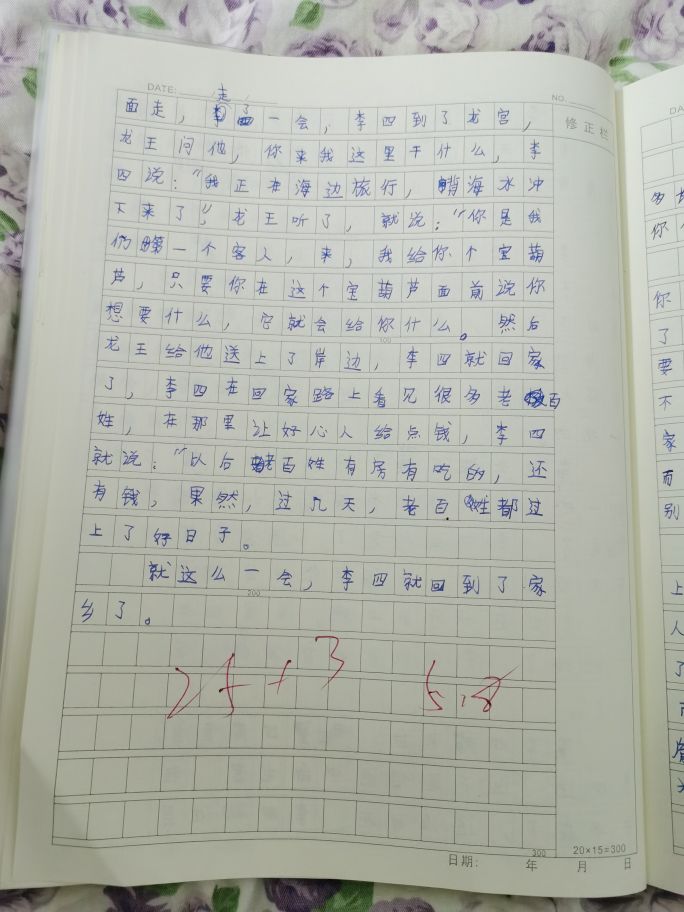 DATE:
NO.
走了
面走，一会，李四到了龙宫，
修正栏
龙王问他，你来我这里干什么，李
四说：“我正在海边旅行，海水冲
下来了”，龙王听了，就说：“你是我
们第一个客人，来，我给你个宝葫
芦，只要你在这个宝葫芦面前说你
想要什么，它就会给你什么。然后
100
龙王给他送上了岸边，李四就回家
了，李四在回家路上看见很多老百
姓，在那里让好心人给点钱，李四
就说：“以后老百姓有房有吃的，还
有钱，果然，过几天，老百姓都过
上了好日子。
就这么一会，李四就回到了家
200
乡了。
25+3
5.8
300
20×15=300
日期： 年 月 日
多
你
你
了
要
不
家
而
别
上
人
了